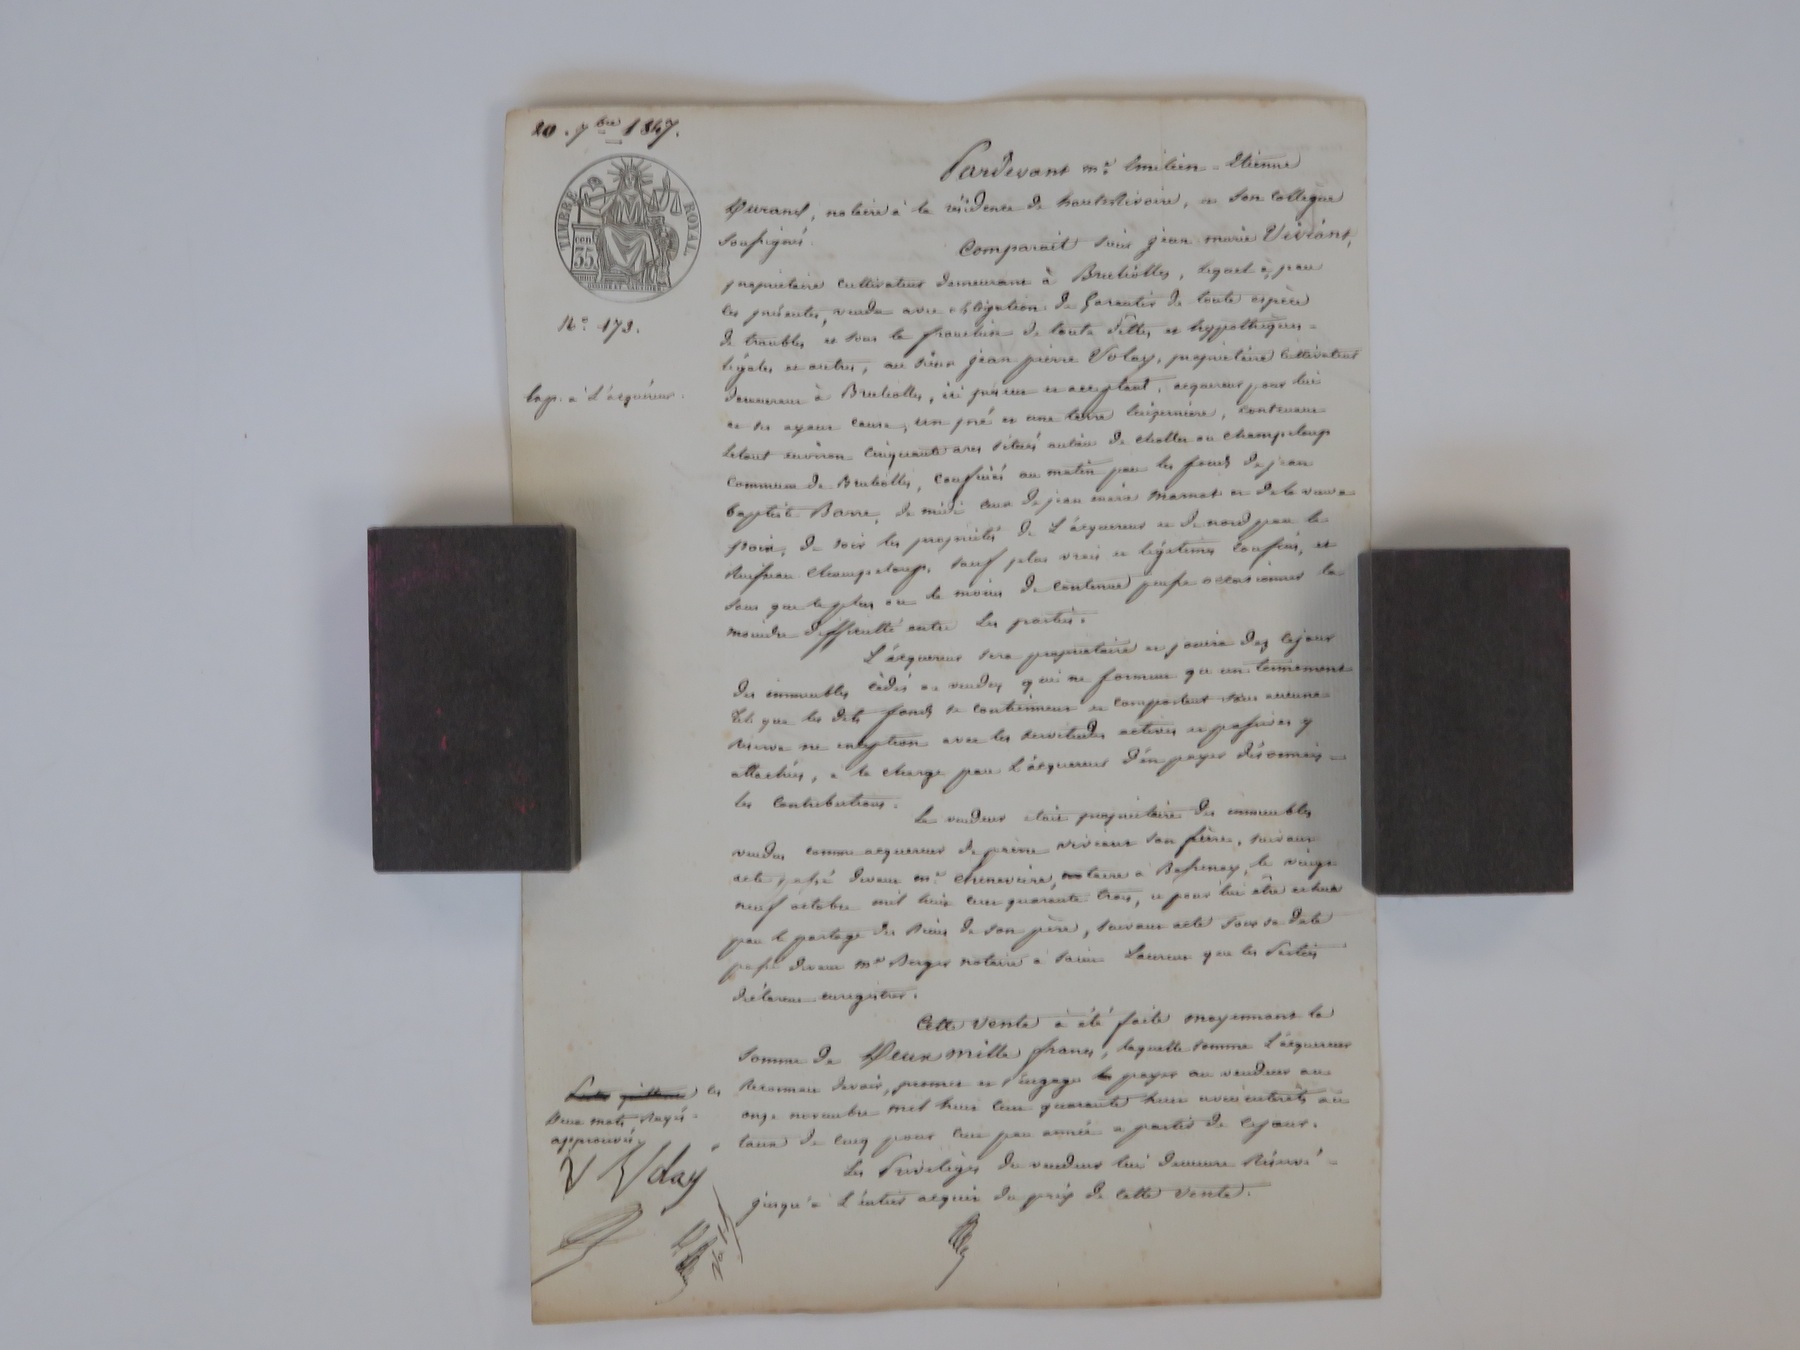 20. 7bre 1847.
TIMBRE ROYAL
cen 35
N° 173.
Exp. à l'acquéreur.
Pardevant me. Emilien-Etienne
Durand, notaire à la résidence de hauterivoire, et son collègue
soussignés.
Comparait sieur jean marie Viviant,
propriétaire cultivateur demeurant à Brulioles, lequel à, par
les présentes, vendu avec obligation de garantir de toute espèce
de troubles et sous la franchise de toute dettes et hyppothèques
légales et autres, au sieur jean pierre Volay, propriétaire cultivateur
demeurant à Brulioles, ici présent et acceptant, acquereur pour lui
et ses ayant cause, un pré et une terre luizernière, contenant
letout environ Cinquante ares situés aulieu de chollet ou champeloup
Commune de Brulioles, Confinés au matin par les fonds de jean
baptiste Barre, de midi ceux de jean marie Marnat et de la veuve
de soir les propriétés de L'acquereur et de nord par le
Ruisseau champeloup, sauf plus vrais et légitimes confins, et
sans que le plus ou le moins de contenue puisse occasionner la
moindre difficulté entre les parties.
L'acquereur sera propriétaire et jouira dez cejour
des immeubles cédés et vendus qui ne forment qu'un tennement
tels que les dits fonds se contiennent et comportent sans aucune
réserve ne exception avec les servitudes actives et passives y
attachées, à la charge par L'acquereur d'en payer désormais
les contributions.
Le vendeur était propriétaire des immeubles
vendus comme acquereur de pierre viviant son frère, suivant
acte passé devant me. Chenevière, notaire à Bessenay, le vingt
neuf octobre mil huit cent quarante trois, et pour lui être échus
par le partage des Biens de son père, suivant acte sous sa date
passé devant me Berger notaire à Saint Laurent que les Parties
déclarent enregistrés.
Cette vente à été faite moyennant la
somme de Deux mille francs, laquelle somme L'acquereur
Reconnait devoir, promet et s'engage la payer au vendeur au
onze novembre mil huit cent quarante huit avec intérêts au
taux de cinq pour cent par année à partir de cejour.
Les Privilèges du vendeur lui demeure Réservé
jusqu'à L'entier acquit du prix de cette vente.
les
Deux mots Rayés
approuvés
Volay